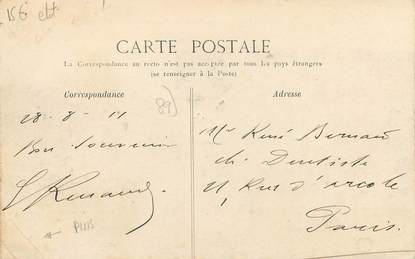 15€
CARTE POSTALE
La Correspondance au recto n'est pas acceptée par tous les pays étrangers
(se renseigner à la Poste)
Correspondance
Adresse
(89)
28-8-11
Bon Souvenir
Renaud
Mr René Bernard
Dentiste
21, Rue d'arcole
Paris.
PUB